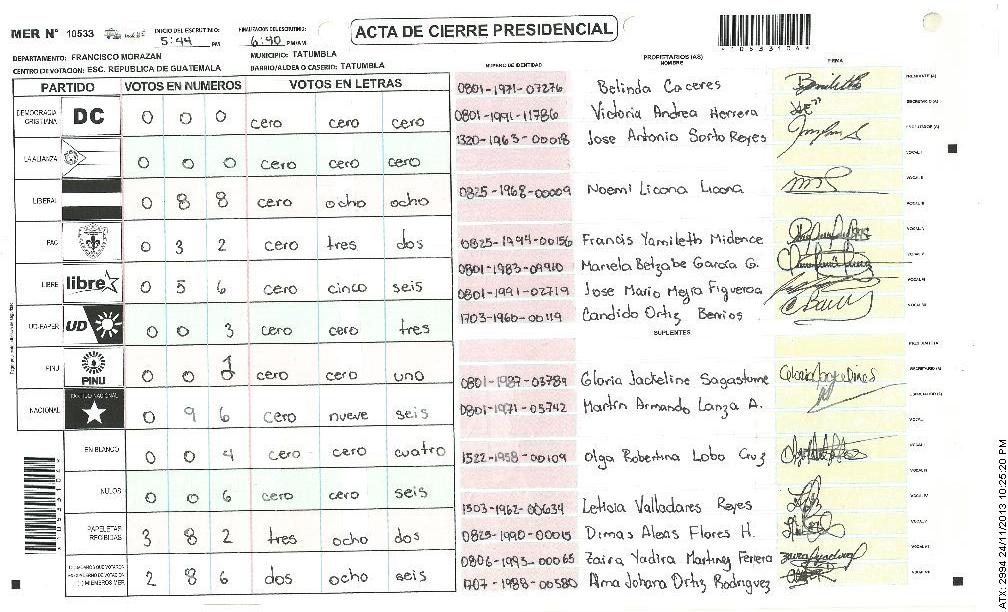 MER N° 10533
INICIO DEL ESCRUTINIO:
5:44 PM
FINALIZACION DEL ESCRUTINIO:
6:40 PM/AM
ACTA DE CIERRE PRESIDENCIAL
DEPARTAMENTO: FRANCISCO MORAZAN
MUNICIPIO: TATUMBLA
CENTRO DE VOTACION: ESC. REPUBLICA DE GUATEMALA
BARRIO/ALDEA O CASERIO: TATUMBLA
PARTIDO VOTOS EN NUMEROS VOTOS EN LETRAS
DEMOCRACIA CRISTIANA DC 0 0 0 cero cero cero
LA ALIANZA 0 0 0 cero cero cero
LIBERAL 0 8 8 cero ocho ocho
PAC 0 3 2 cero tres dos
LIBRE libre 0 5 6 cero cinco seis
UD-FAPER UD 0 0 3 cero cero tres
PINU PINU 0 0 1 cero cero uno
NACIONAL 0 9 6 cero nueve seis
EN BLANCO 0 0 4 cero cero cuatro
NULOS 0 0 6 cero cero seis
PAPELETAS RECIBIDAS 3 8 2 tres ocho dos
2 8 6 dos ocho seis
NUMERO DE IDENTIDAD
PROPIETARIOS (AS)
NOMBRE
FIRMA
0801-1971-07276 Belinda Caceres
0801-1991-11786 Victoria Andrea Herrera
1320-1963-00018 Jose Antonio Sorto Reyes
0825-1968-00009 Noemi Licona Licona
0825-1994-00156 Francis Yamileth Midence
0801-1983-09910 Mariela Betzabe Garcia G.
0801-1991-02719 Jose Mario Mejia Figueroa
1703-1960-00119 Candido Ortiz Berrios
SUPLENTES
0801-1987-03789 Gloria Jackeline Sagastume
0801-1971-05742 Martin Armando Lanza A.
1522-1958-00109 Olga Robertina Lobo Cruz
1503-1962-00634 Leticia Valladares Reyes
0825-1990-00015 Dimas Alexis Flores H.
0806-1993-00065 Zaira Yadira Martinez Ferrera
1707-1988-00580 Alma Johana Ortiz Rodriguez
ATX: 2994 24/11/2013 10:25:20 PM